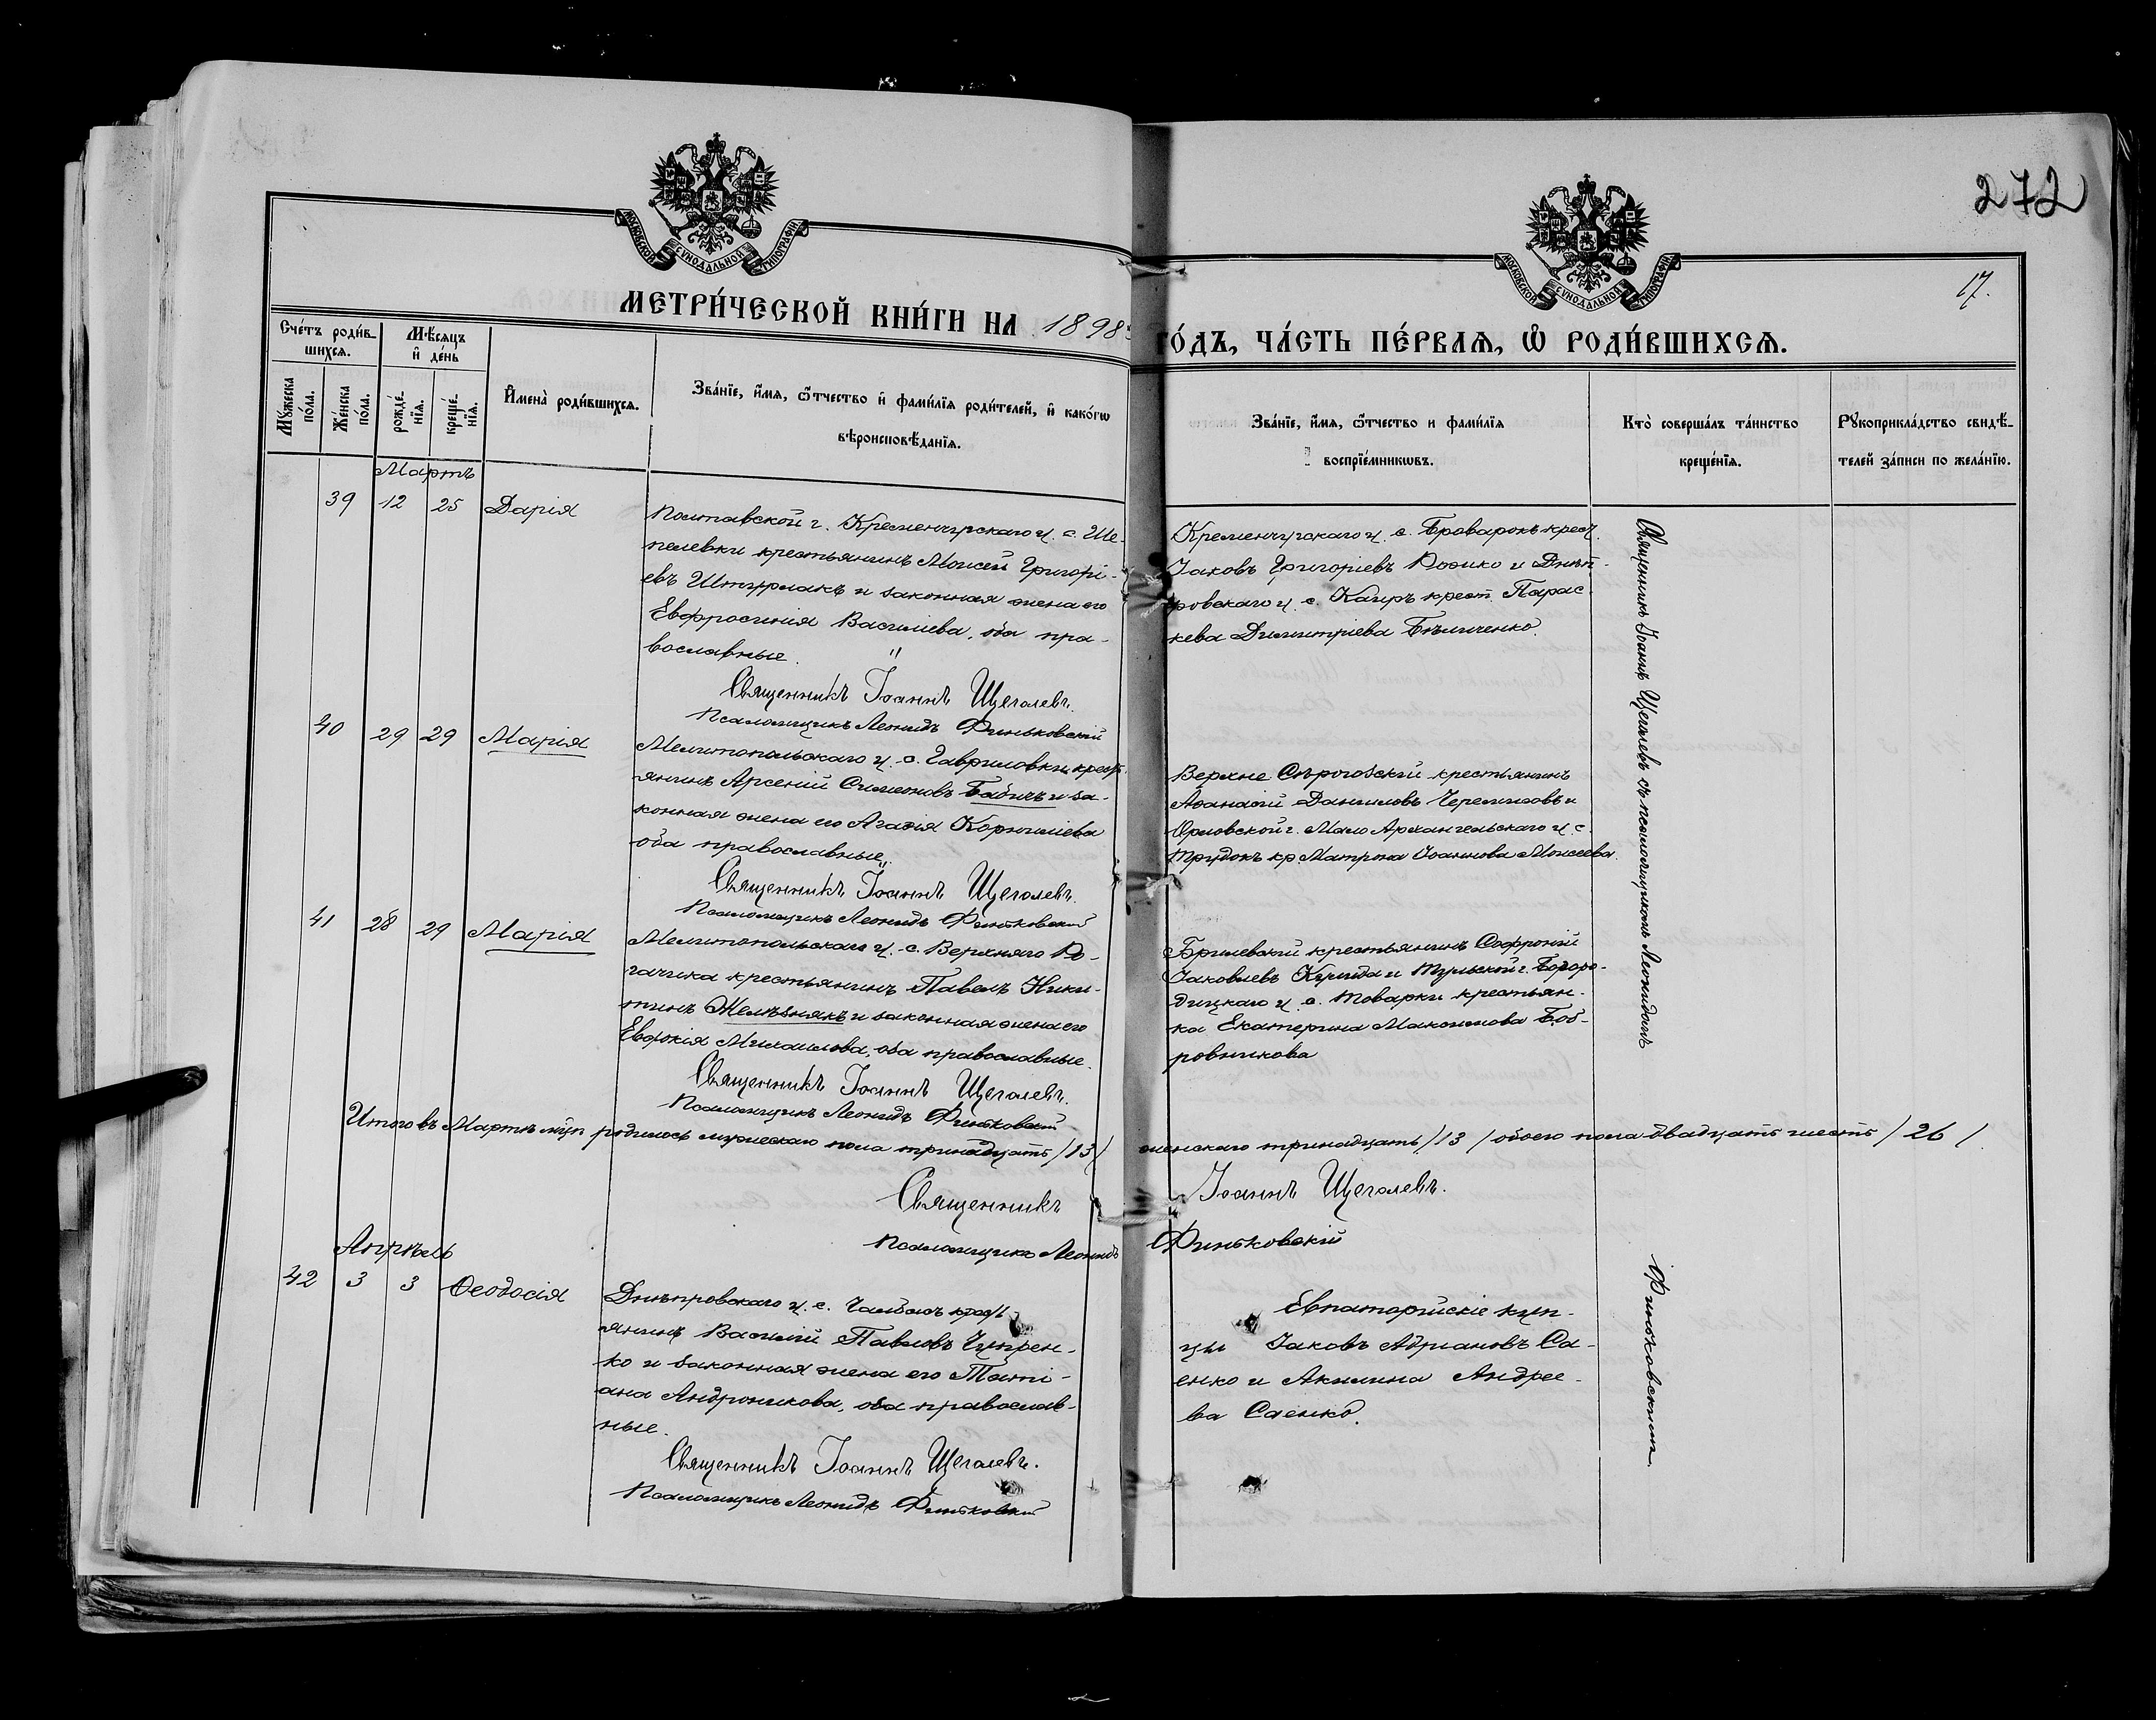 272
17.
МОСКОВСКОЙ СѴНОДАЛЬНОЙ ТИПОГРАФІИ
МОСКОВСКОЙ СѴНОДАЛЬНОЙ ТИПОГРАФІИ
МЕТРИ́ЧЕСКОЙ КНИ́ГИ НА 1898
ГО́ДЪ, ЧА́СТЬ ПЕ́РВАѦ, Ѡ҆ РОДИ́ВШИХСѦ.
Сче́тъ роди́в-
шихсѧ.
Мꙋ́жеска по́ла.
Же́нска по́ла.
Мѣ́сѧцъ
и҆ де́нь
рожде́нїѧ.
креще́нїѧ.
И҆мена̀ роди́вшихсѧ.
Зва́нїе, и҆́мѧ, ѻ҆́тчество и҆ фами́лїѧ роди́телей, и҆ како́гѡ
вѣроисповѣ́данїѧ.
Зва́нїе, и҆́мѧ, ѻ҆́тчество и фами́лїѧ
воспрїе́мникѡвъ.
Кто̀ соверша́лъ та́инство
креще́нїѧ.
Рꙋкоприкла́дство свидѣ́-
телей за́писи по жела́нїю.
Мартъ
39 12 25 Дарія
Полтавской г. Кременчугскаго у. с. Ше-
пелевки крестьянинъ Моисей Григорі-
евъ Штурмакъ и законная жена его
Евфросинія Василіева, оба пра-
вославные.
Священникъ Іоаннъ Щеголевъ.
Псаломщикъ Леонидъ Финьковскій
Кременчугскаго у. с. Броварокъ крест.
Іаковъ Григоріевъ и Днѣп-
ровскаго у. с. Каиръ крест. Парас
кева Димитріева Бѣличенко.
40 29 29 Марія
Мелитопольскаго у. с. Гавриловки крест-
янинъ Арсеній Симеоновъ Бабичъ и за-
конная жена его Агафія Корниліева
оба православные.
Священникъ Іоаннъ Щеголевъ.
Псаломщикъ Леонидъ Финьковскій
Верхне Сѣрогозскій крестьянинъ
Афанасій Даниловъ и
Орловской г. Мало Архангельскаго у. с.
Трудокъ кр. Матрона Іоаннова Моисеева.
41 28 29 Марія
Мелитопольскаго у. с. Верхняго Ро-
гачика крестьянинъ Павелъ Ники-
тинъ Желѣзнякъ и законная жена его
Евдокія Михаилова, оба православные.
Священникъ Іоаннъ Щеголевъ.
Псаломщикъ Леонидъ Финьковскій
Брилевскій крестьянинъ Софроній
Іаковлевъ и Тульской г. Богоро-
дицкаго у. с. Товарки крестьян-
ка Екатерина Максимова Боб-
ровникова
Итого въ Мартѣ м-цѣ родилось мужескаго пола тринадцать /13/ женскаго тринадцать /13/ обоего пола двадцать шесть /26/.
Священникъ Іоаннъ Щеголевъ.
Псаломщикъ Леонидъ Финьковскій
Апрѣль
42 3 3 Феодосія
Днѣпровскаго у. с. Чалбасъ крест-
янинъ Василій Павловъ Чупрен-
ко и законная жена его Таті-
ана Андроникова, оба православ-
ные.
Священникъ Іоаннъ Щеголевъ.
Псаломщикъ Леонидъ Финьковскій
Евпаторійскіе куп-
цы Іаковъ Адріановъ Са-
енко и Акилина Андрее-
ва Саенко.
Священникъ Іоаннъ Щеголевъ съ псаломщикомъ Леонидомъ
Финьковскимъ